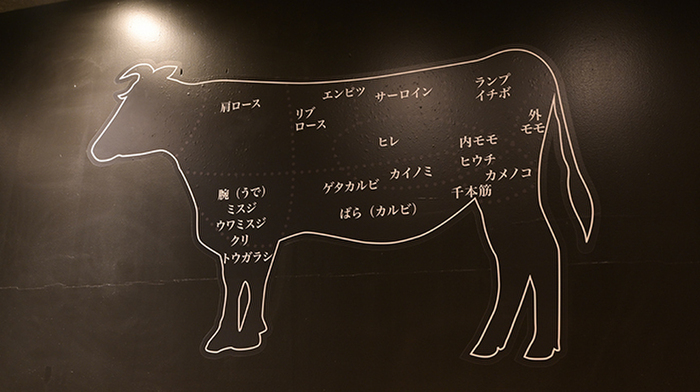 肩ロース
リブ
ロース
エンピツ
サーロイン
ランプ
イチボ
外
モモ
ヒレ
内モモ
ヒウチ
カメノコ
千本筋
カイノミ
ゲタカルビ
ばら（カルビ）
腕（うで）
ミスジ
ウワミスジ
クリ
トウガラシ